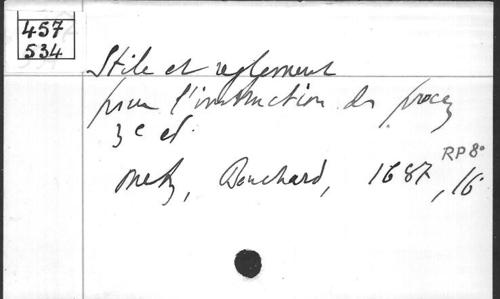 457
534
Stile et reglement
pour l'instruction des procez
3e ed.
Metz, Bouchard, 1687, 16°
RP 8°